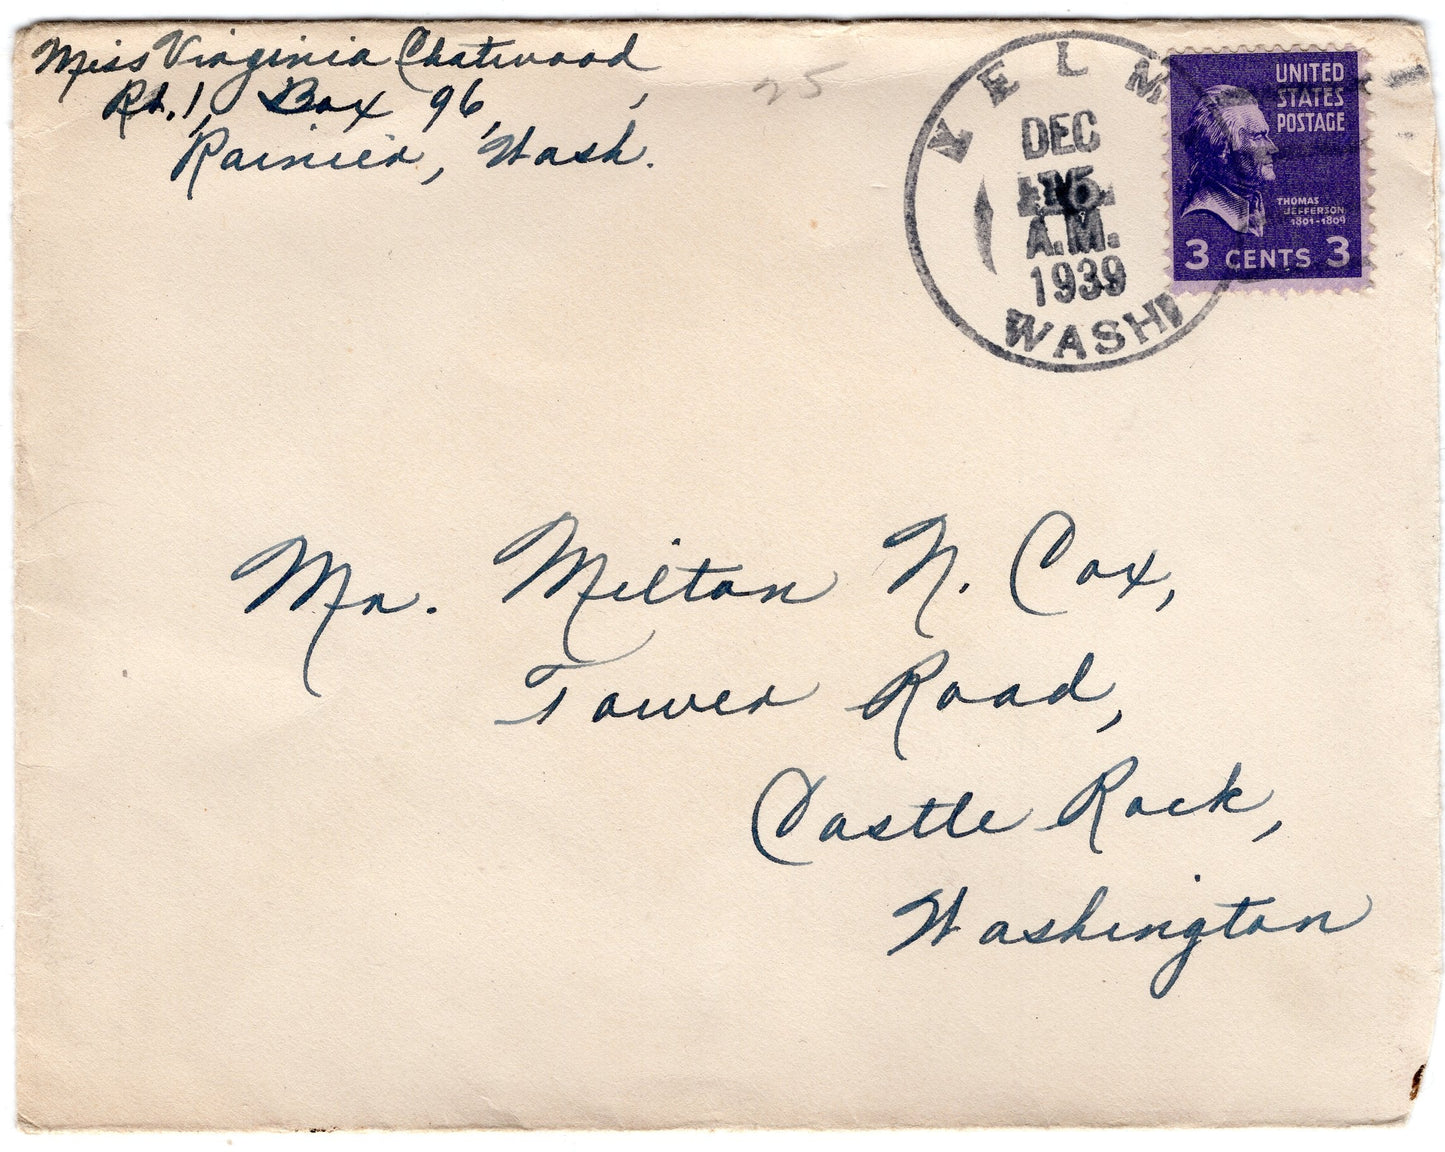 Miss Virginia Chatwood,
Rt. 1, Box 96,
Rainier, Wash.
25
YELM
DEC
15
A.M.
1939
WASH
UNITED
STATES
POSTAGE
THOMAS
JEFFERSON
1801-1809
3 CENTS 3
Mr. Milton N. Cox,
Tower Road,
Castle Rock,
Washington